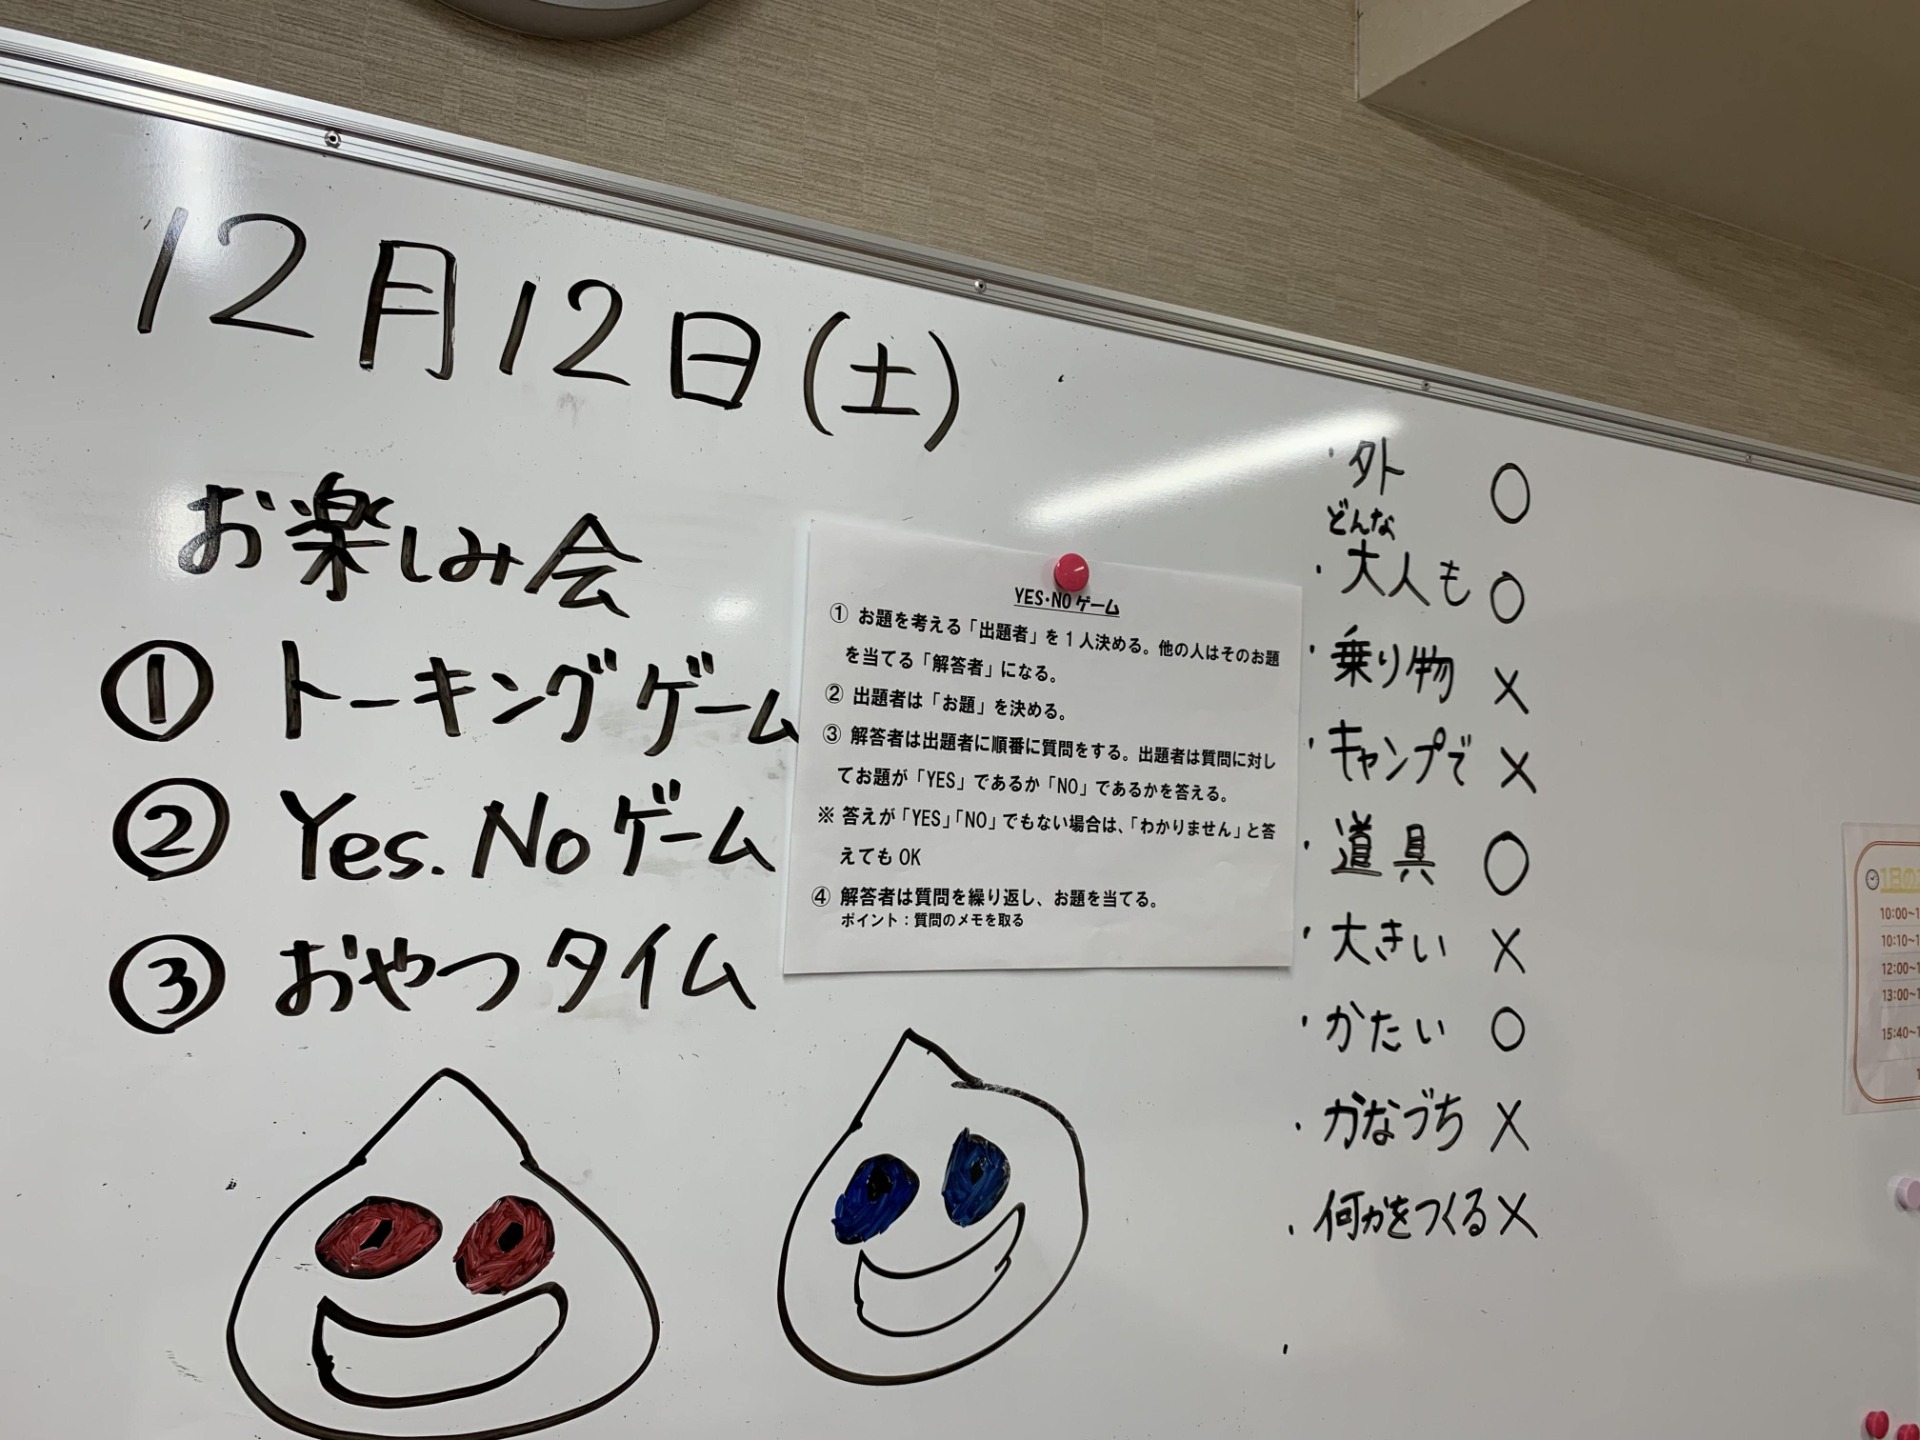 12月12日(土)
お楽しみ会
① トーキングゲーム
② Yes.Noゲーム
③ おやつタイム
YES・NOゲーム
① お題を考える「出題者」を1人決める。他の人はそのお題
を当てる「解答者」になる。
② 出題者は「お題」を決める。
③ 解答者は出題者に順番に質問をする。出題者は質問に対し
てお題が「YES」であるか「NO」であるかを答える。
※ 答えが「YES」「NO」でもない場合は、「わかりません」と答
えてもOK
④ 解答者は質問を繰り返し、お題を当てる。
ポイント：質問のメモを取る
・外 ○
どんな
・大人も ○
・乗り物 ×
・キャンプで ×
・道具 ○
・大きい ×
・かたい ○
・かなづち ×
・何かをつくる ×
・
1日の
10:00~1
10:10~1
12:00~1
13:00~1
15:40~1